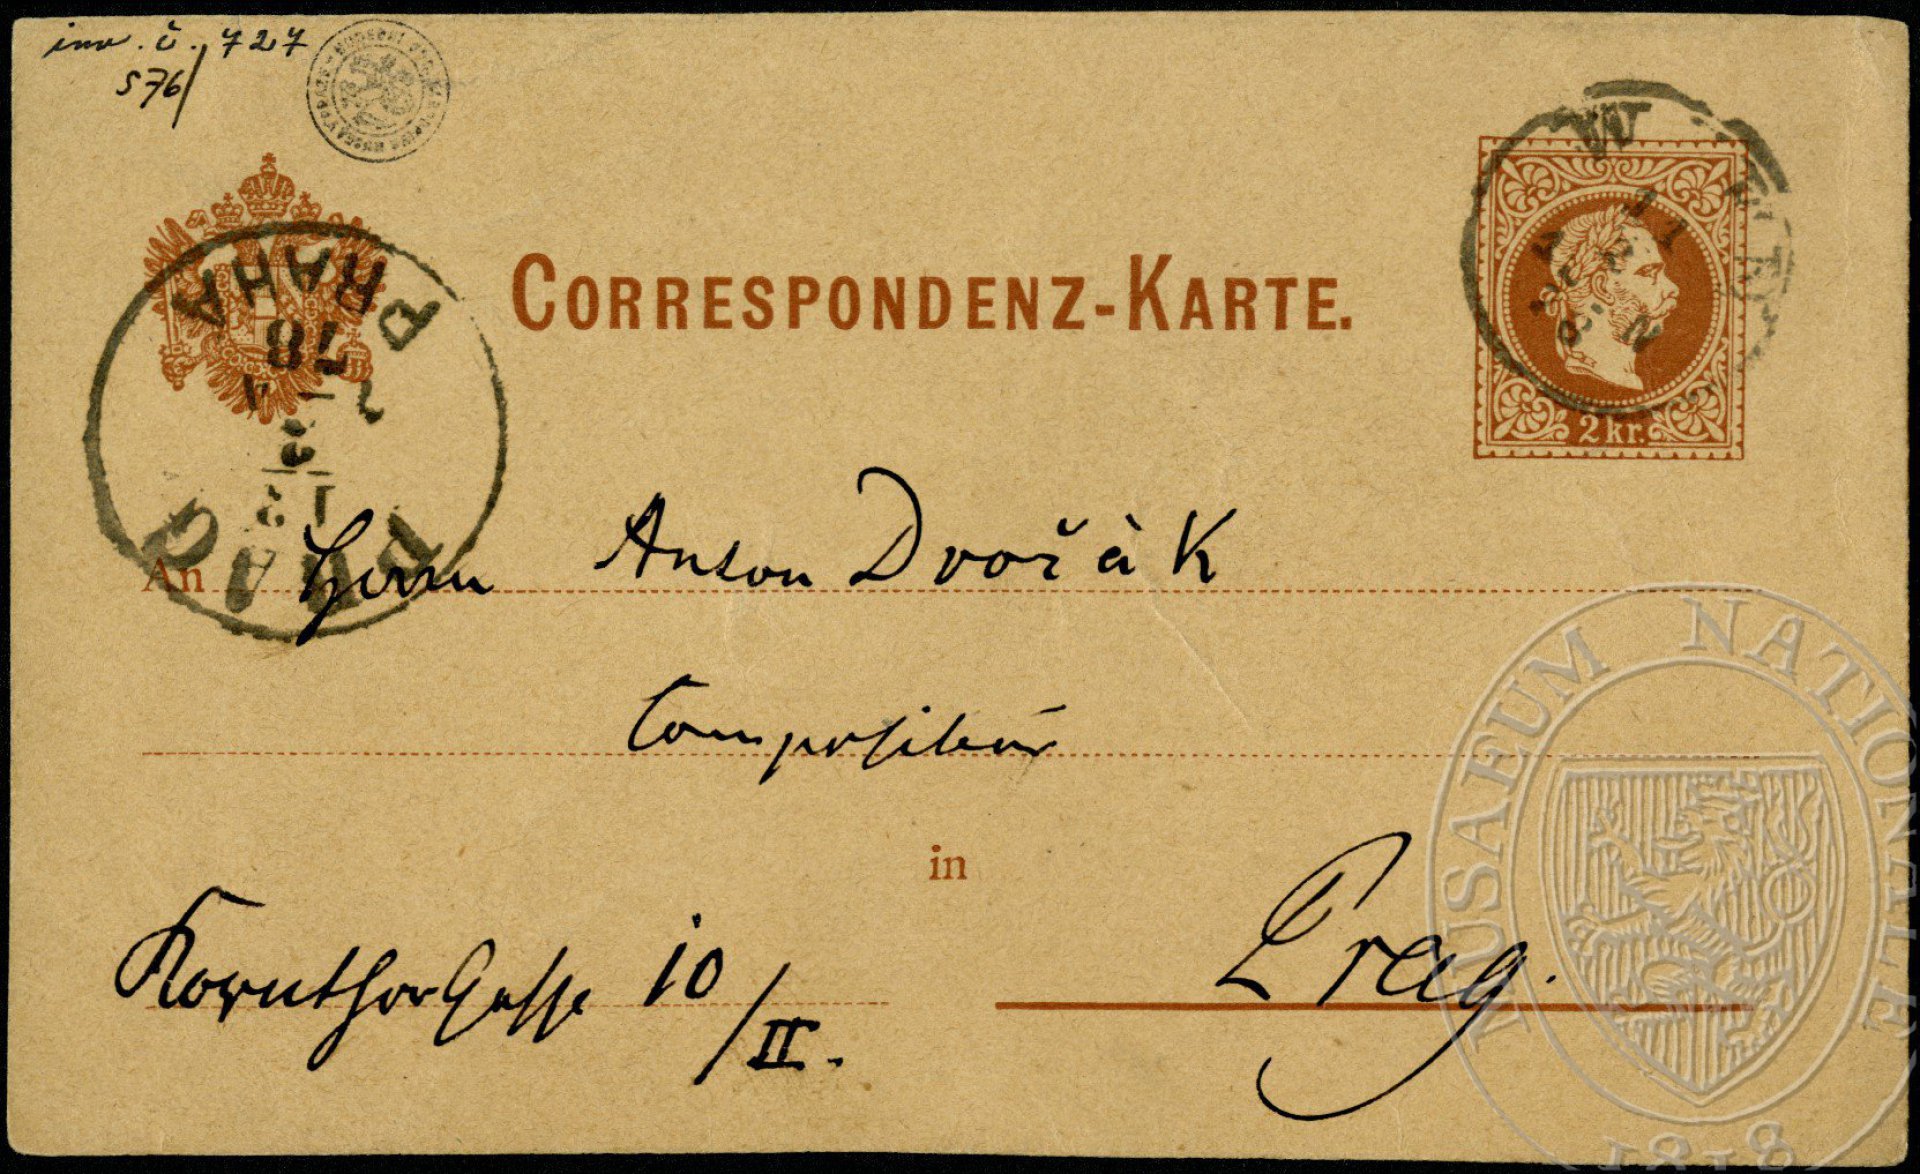 inv. č. 727
S76/
CORRESPONDENZ-KARTE.
2 kr.
PRAG
PRAHA
78
An Herrn Anton Dvořàk
Compositeur
in
Kornthorgasse 10/II.
Prag.
MUSAEUM NATIONALE
1818